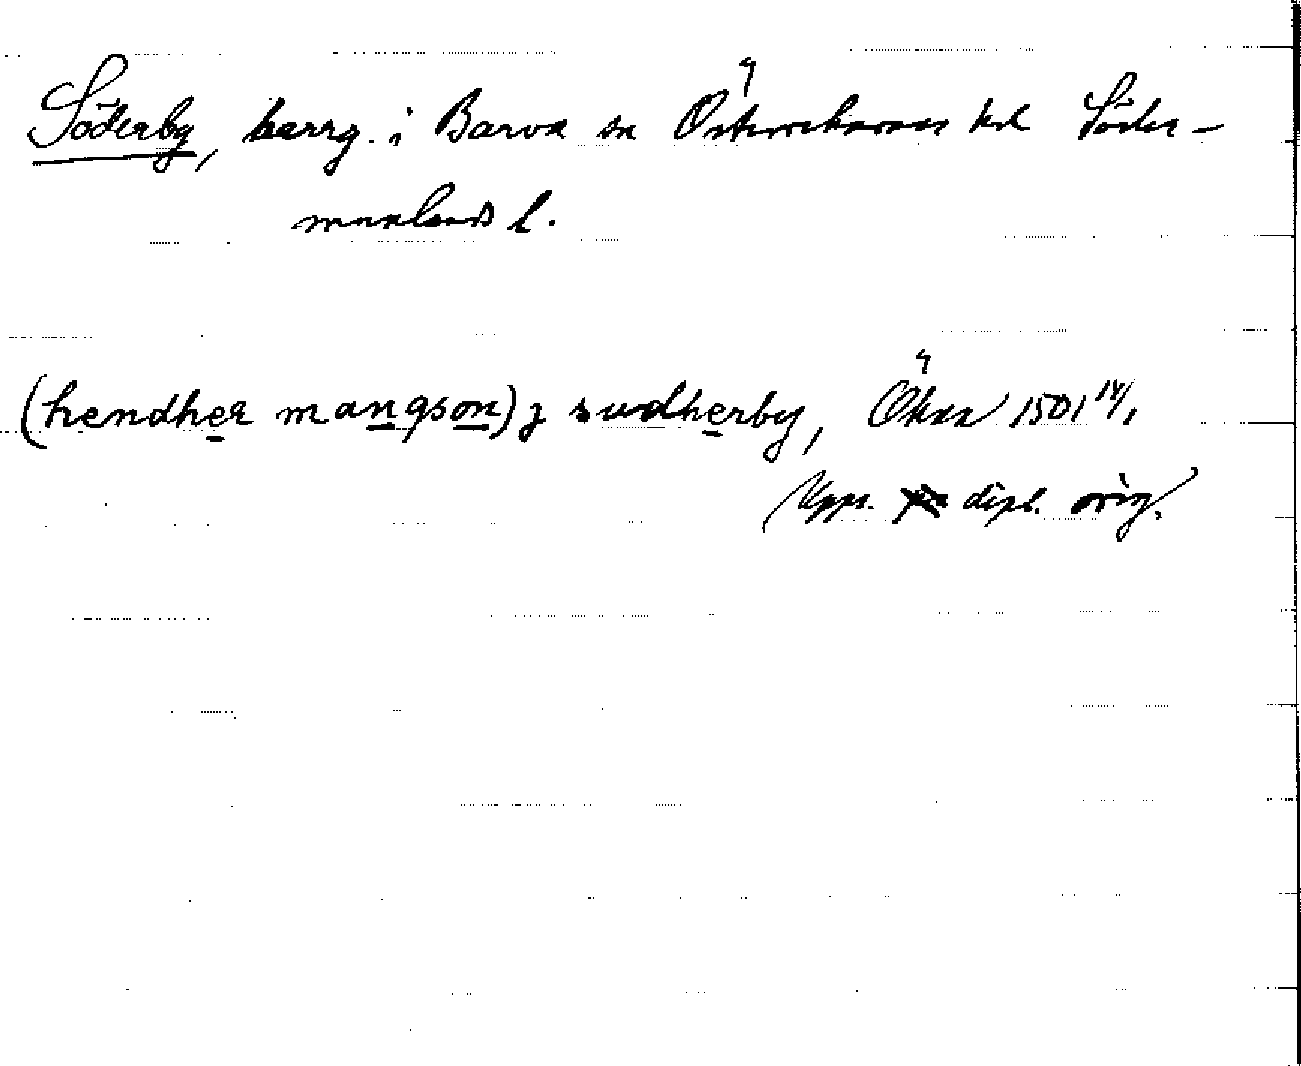 Söderby, herrg. i Barva sn Österrekarnes hd Söder-
manlands l.
(hendher mangson) j sudherby, Ökna 1501 14/1
Upps. dipl. orig.